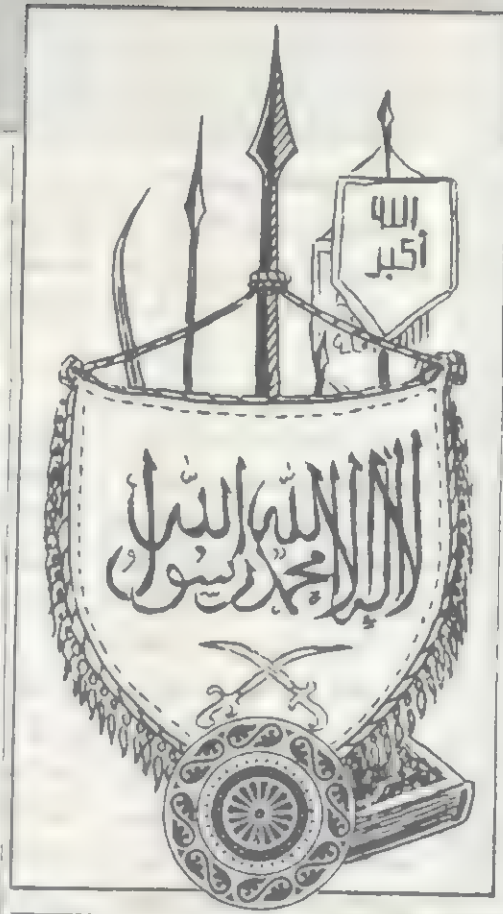 الله
أكبر
لا إله إلا الله محمد رسول الله